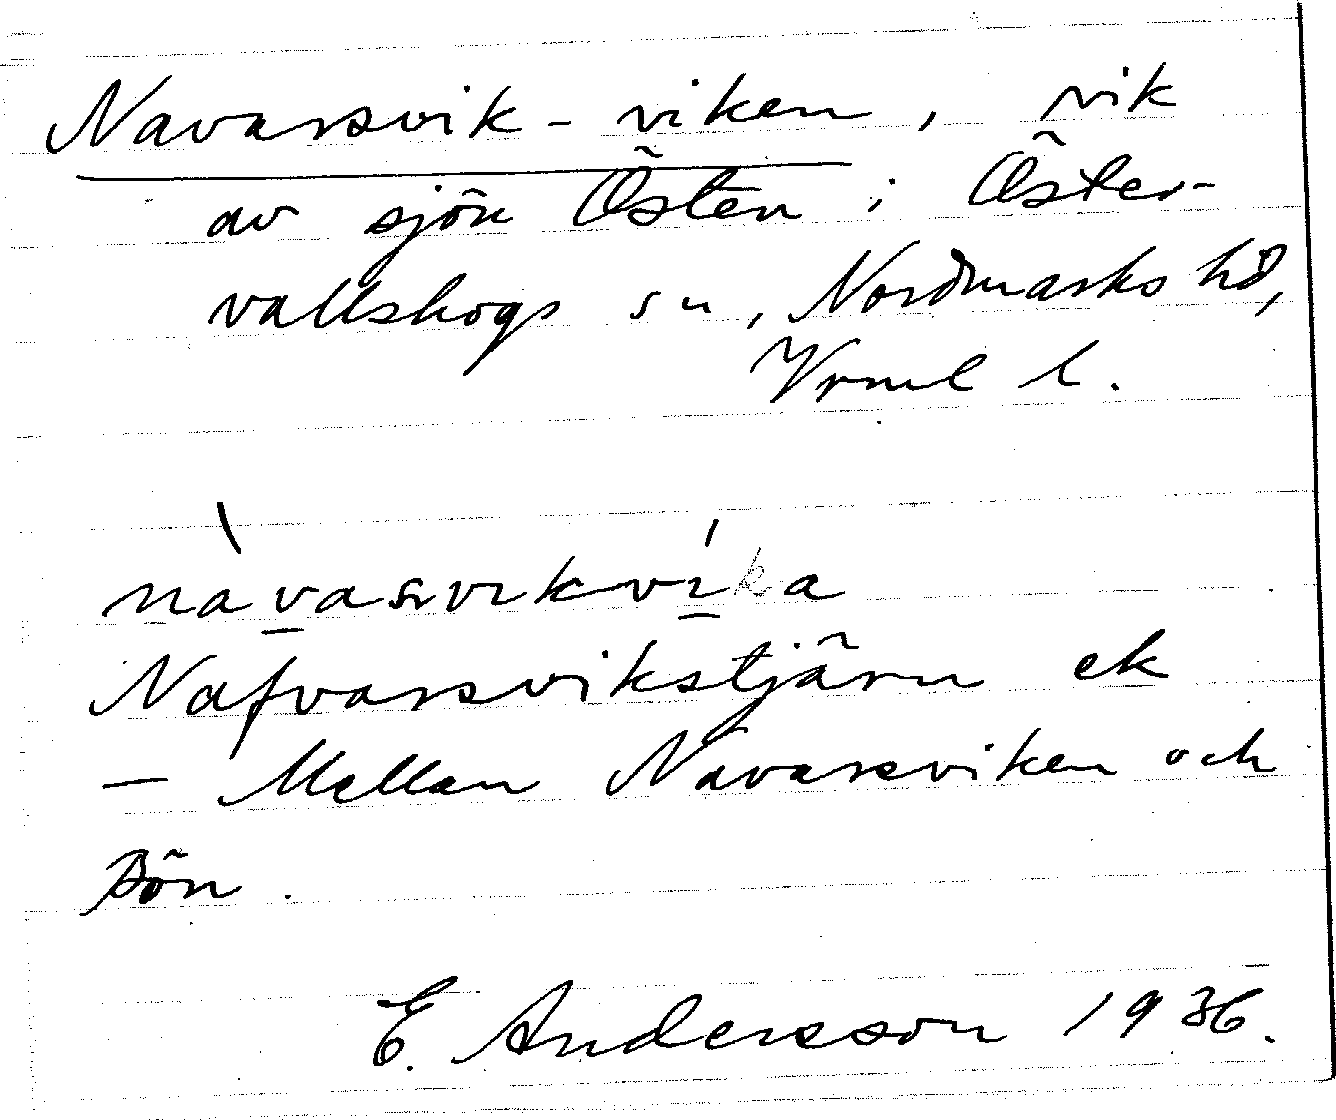 Navarsvik-viken, vik
av sjön Östen i Öster-
vallskogs sn, Nordmarks hd,
Vrml l.
navasvikvika
Nafvarsvikstjärn ek
— Mellan Navarsviken och
Bön.
E. Andersson 1936.